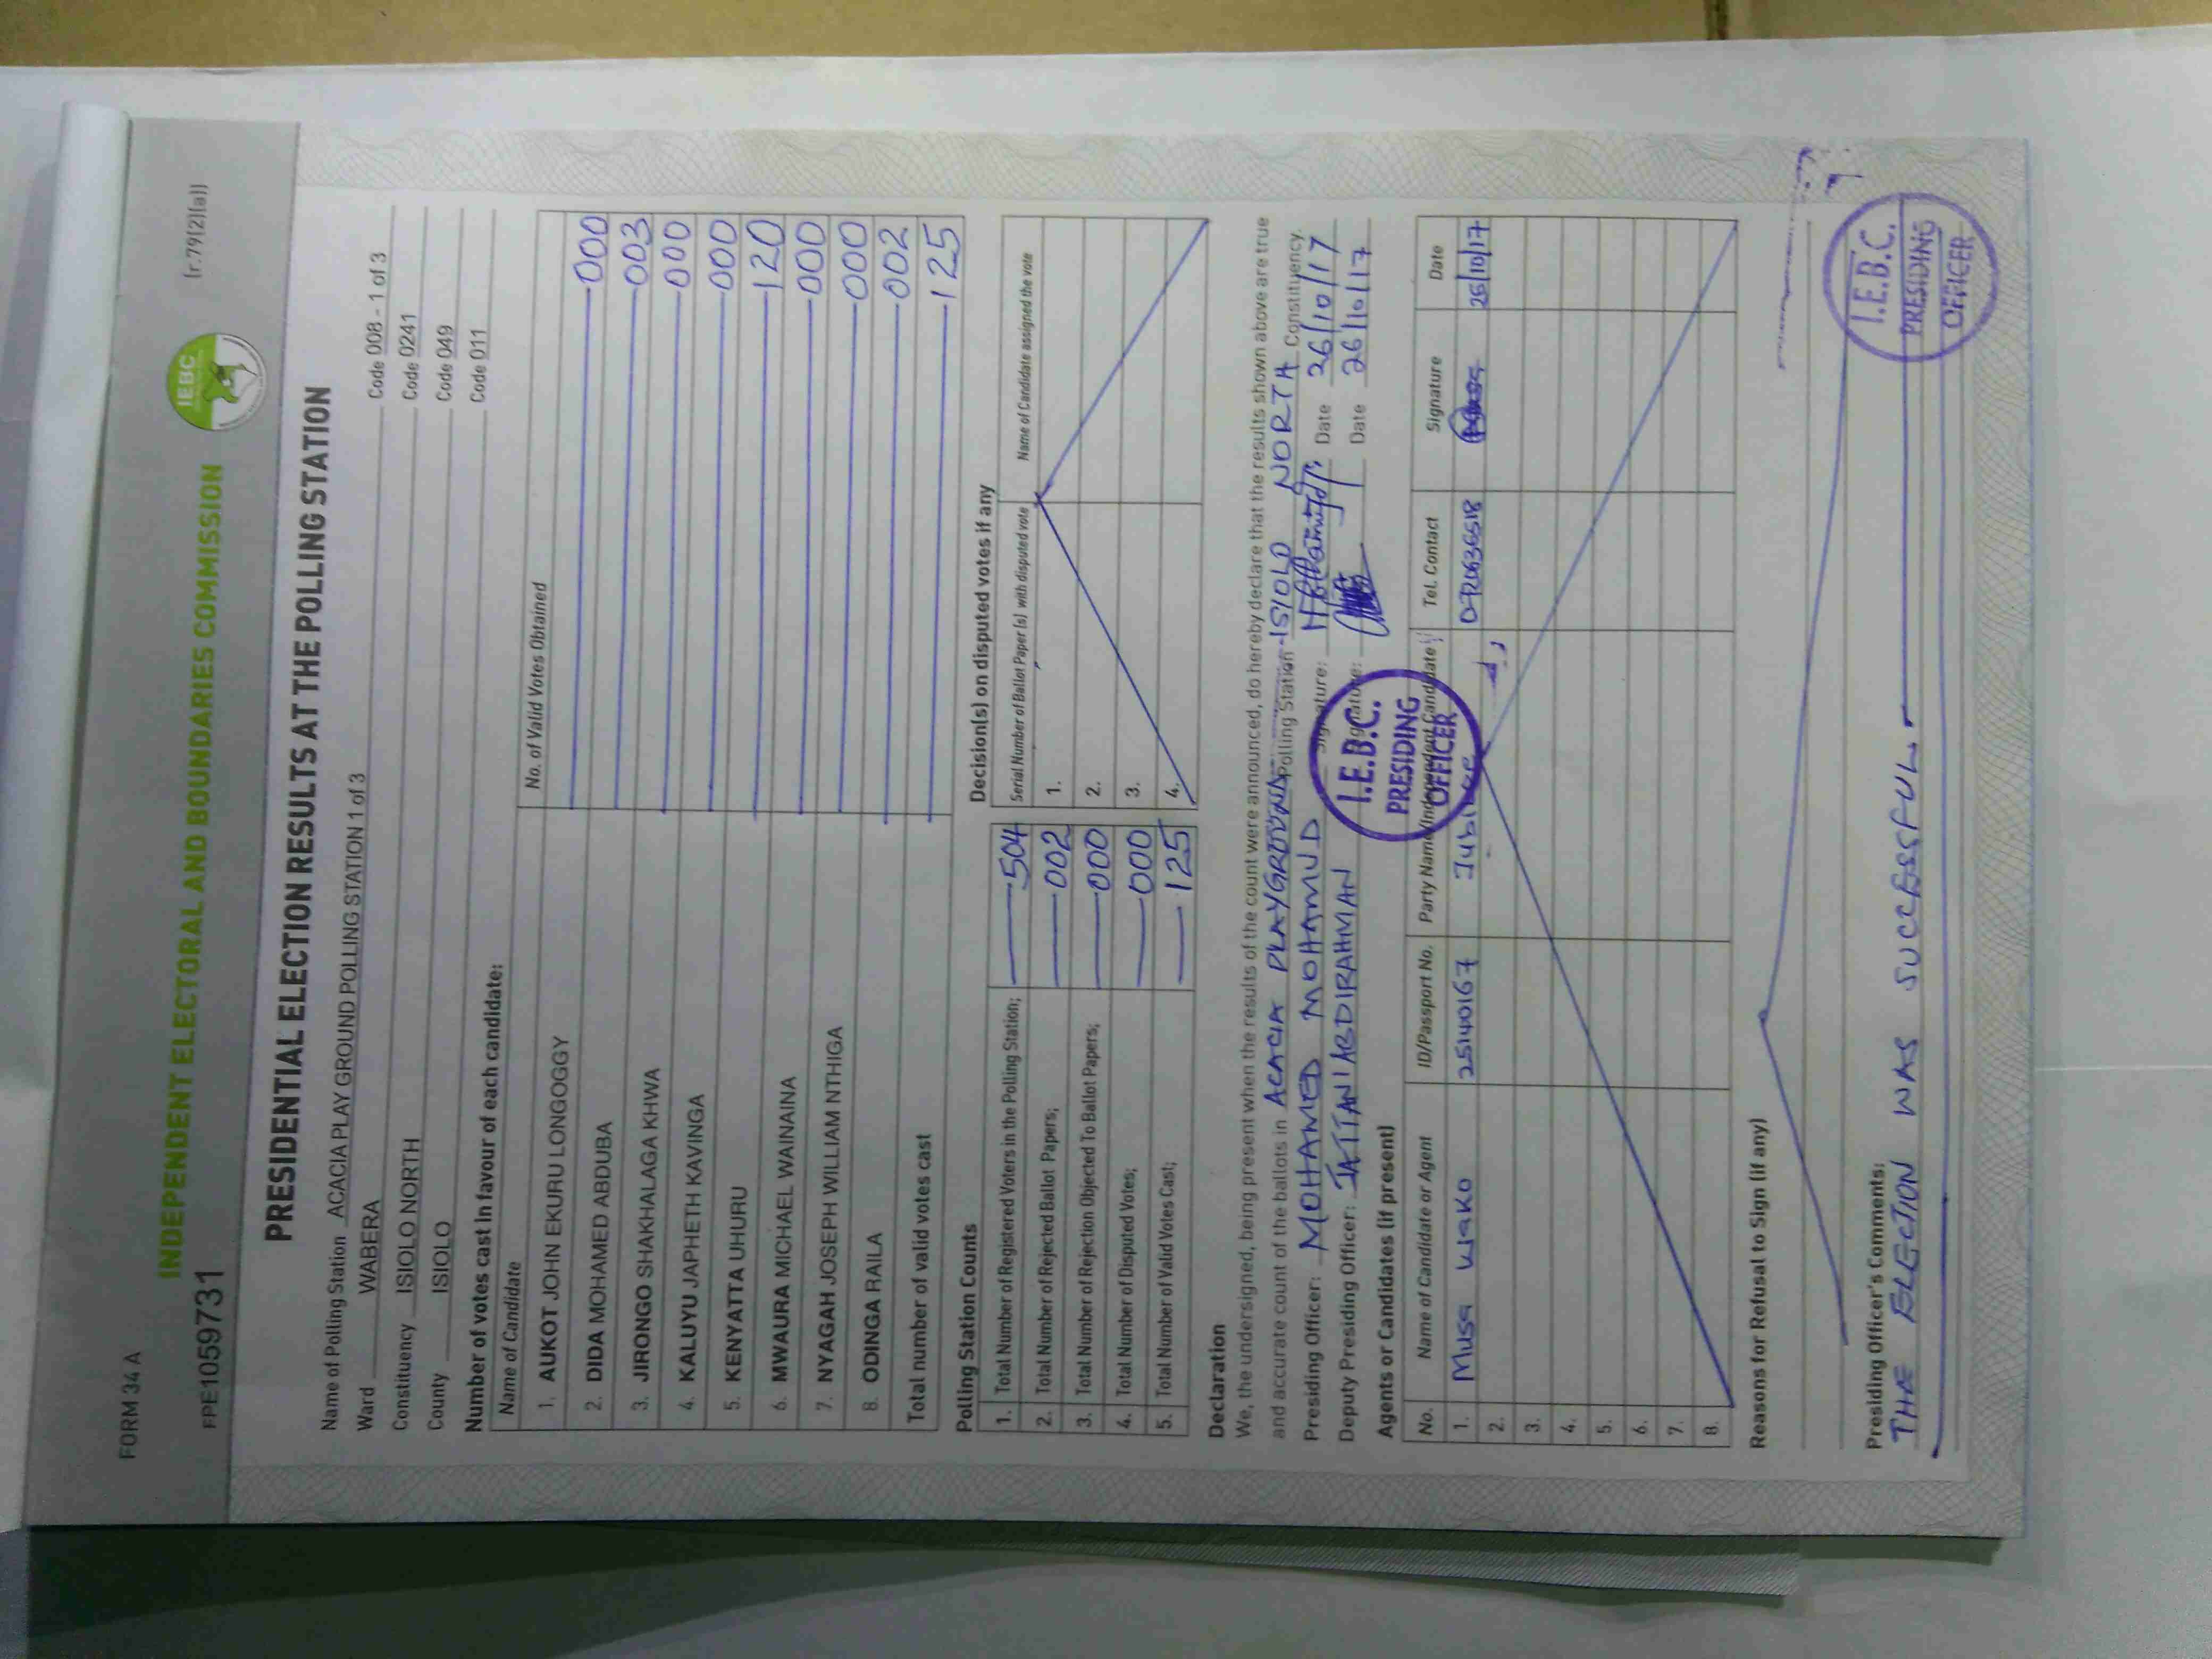 FORM 34 A
INDEPENDENT ELECTORAL AND BOUNDARIES COMMISSION
IEBC
(r.79(2)(a))
FPE1059731
PRESIDENTIAL ELECTION RESULTS AT THE POLLING STATION
Name of Polling Station ACACIA PLAY GROUND POLLING STATION 1 of 3 Code 008 - 1 of 3
Ward WABERA Code 0241
Constituency ISIOLO NORTH Code 049
County ISIOLO Code 011
Number of votes cast in favour of each candidate:
Name of Candidate No. of Valid Votes Obtained
1. AUKOT JOHN EKURU LONGOGGY 000
2. DIDA MOHAMED ABDUBA 003
3. JIRONGO SHAKHALAGA KHWA 000
4. KALUYU JAPHETH KAVINGA 000
5. KENYATTA UHURU 120
6. MWAURA MICHAEL WAINAINA 000
7. NYAGAH JOSEPH WILLIAM NTHIGA 000
8. ODINGA RAILA 002
Total number of valid votes cast 125
Polling Station Counts
1. Total Number of Registered Voters in the Polling Station; 504
2. Total Number of Rejected Ballot Papers; 002
3. Total Number of Rejection Objected To Ballot Papers; 000
4. Total Number of Disputed Votes; 000
5. Total Number of Valid Votes Cast; 125
Decision(s) on disputed votes if any
Serial Number of Ballot Paper (s) with disputed vote Name of Candidate assigned the vote
1.
2.
3.
4.
Declaration
We, the undersigned, being present when the results of the count were announced, do hereby declare that the results shown above are true
and accurate count of the ballots in ACACIA PLAYGROUND Polling Station ISIOLO NORTH Constituency.
Presiding Officer: MOHAMED MOHAMUD Signature: Date 26/10/17
Deputy Presiding Officer: JATTANI ABDIRAHMAN Signature: Date 26/10/17
I.E.B.C.
PRESIDING
OFFICER
Agents or Candidates (if present)
No. Name of Candidate or Agent ID/Passport No. Party Name/Independent Candidate Tel. Contact Signature Date
1. Musa Wako 25140167 Jubilee 0720636518 26/10/17
2.
3.
4.
5.
6.
7.
8.
Reasons for Refusal to Sign (if any)
Presiding Officer's Comments:
THE ELECTION WAS SUCCESSFUL
I.E.B.C.
PRESIDING
OFFICER